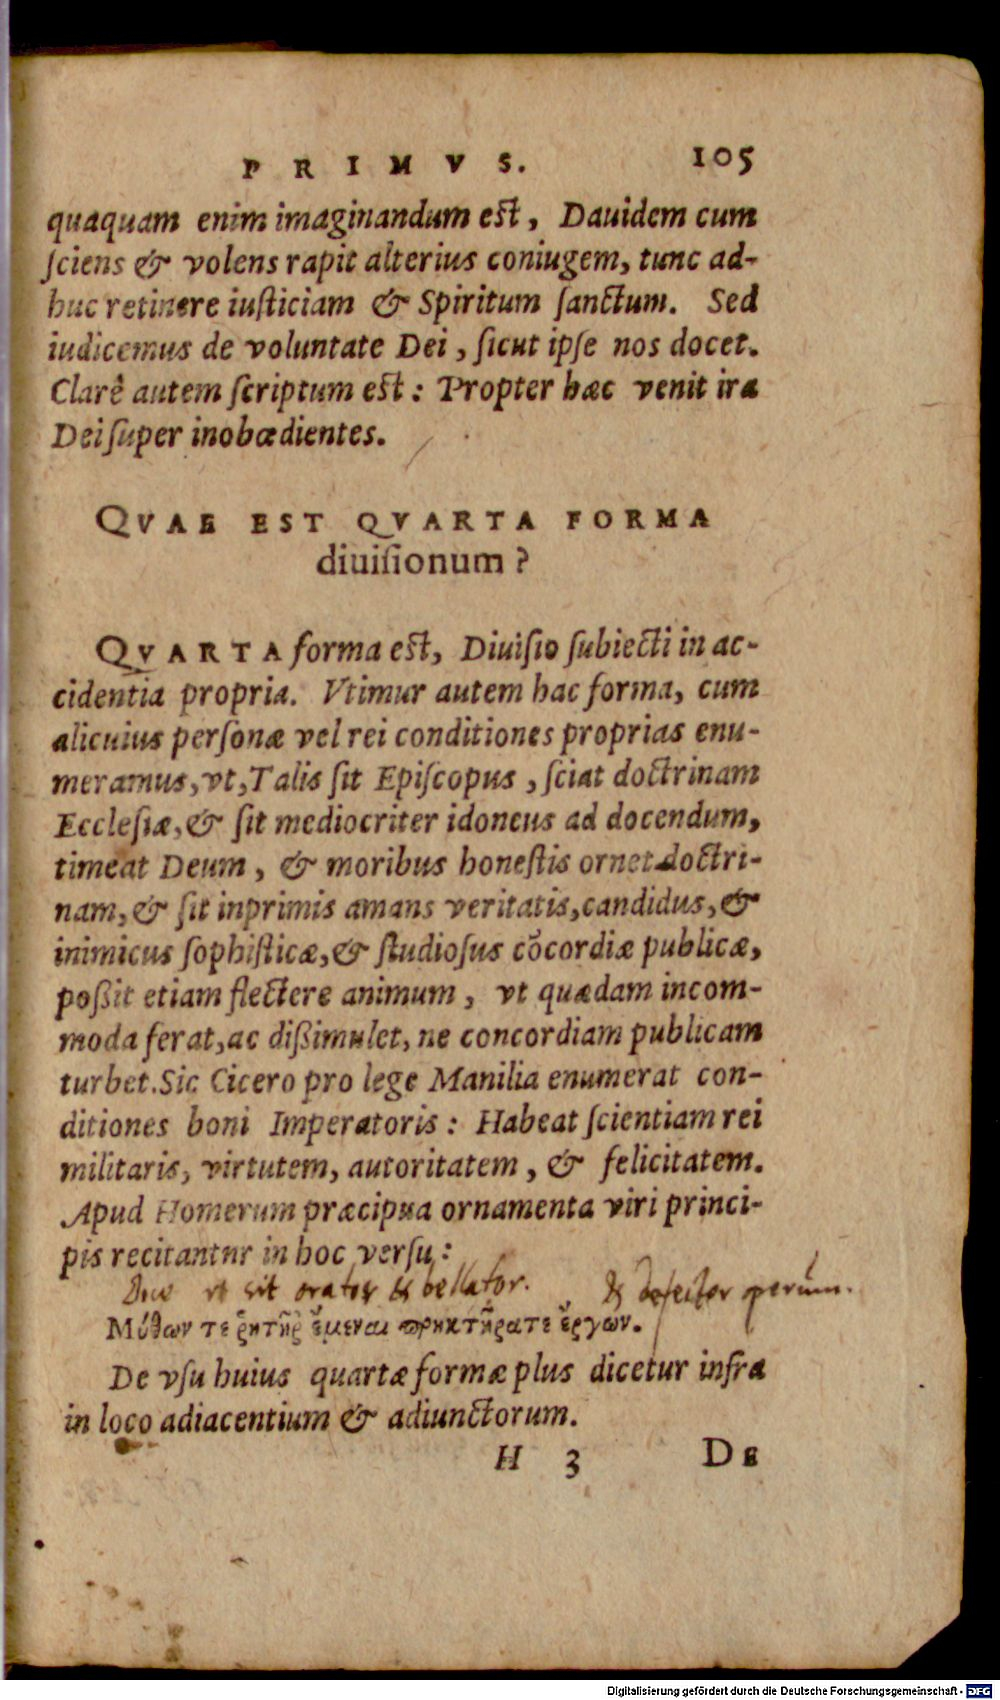 PRIMVS. 105
quaquam enim imaginandum est, Dauidem cum
sciens & volens rapit alterius coniugem, tunc ad-
huc retinere iusticiam & Spiritum sanctum. Sed
iudicemus de voluntate Dei, sicut ipse nos docet.
Clarè autem scriptum est: Propter hæc venit ira
Dei super inobœdientes.
QVAE EST QVARTA FORMA
diuisionum?
QVARTA forma est, Diuisio subiecti in ac-
cidentia propria. Vtimur autem hac forma, cum
alicuius personæ vel rei conditiones proprias enu-
meramus, vt, Talis sit Episcopus, sciat doctrinam
Ecclesiæ, & sit mediocriter idoneus ad docendum,
timeat Deum, & moribus honestis ornet doctri-
nam, & sit inprimis amans veritatis, candidus, &
inimicus sophisticæ, & studiosus cōcordiæ publicæ,
poßit etiam flectere animum, vt quædam incom-
moda ferat, ac dißimulet, ne concordiam publicam
turbet. Sic Cicero pro lege Manilia enumerat con-
ditiones boni Imperatoris: Habeat scientiam rei
militaris, virtutem, autoritatem, & felicitatem.
Apud Homerum præcipua ornamenta viri princi-
pis recitantur in hoc versu:
vt sit orator & bellator. &
Μύθων τε ῥητῆῤ ἔμεναι πρηκτῆρατε ἔργων.
De vsu huius quartæ formæ plus dicetur infra
in loco adiacentium & adiunctorum.
H 3 DE
Digitalisierung gefördert durch die Deutsche Forschungsgemeinschaft - DFG